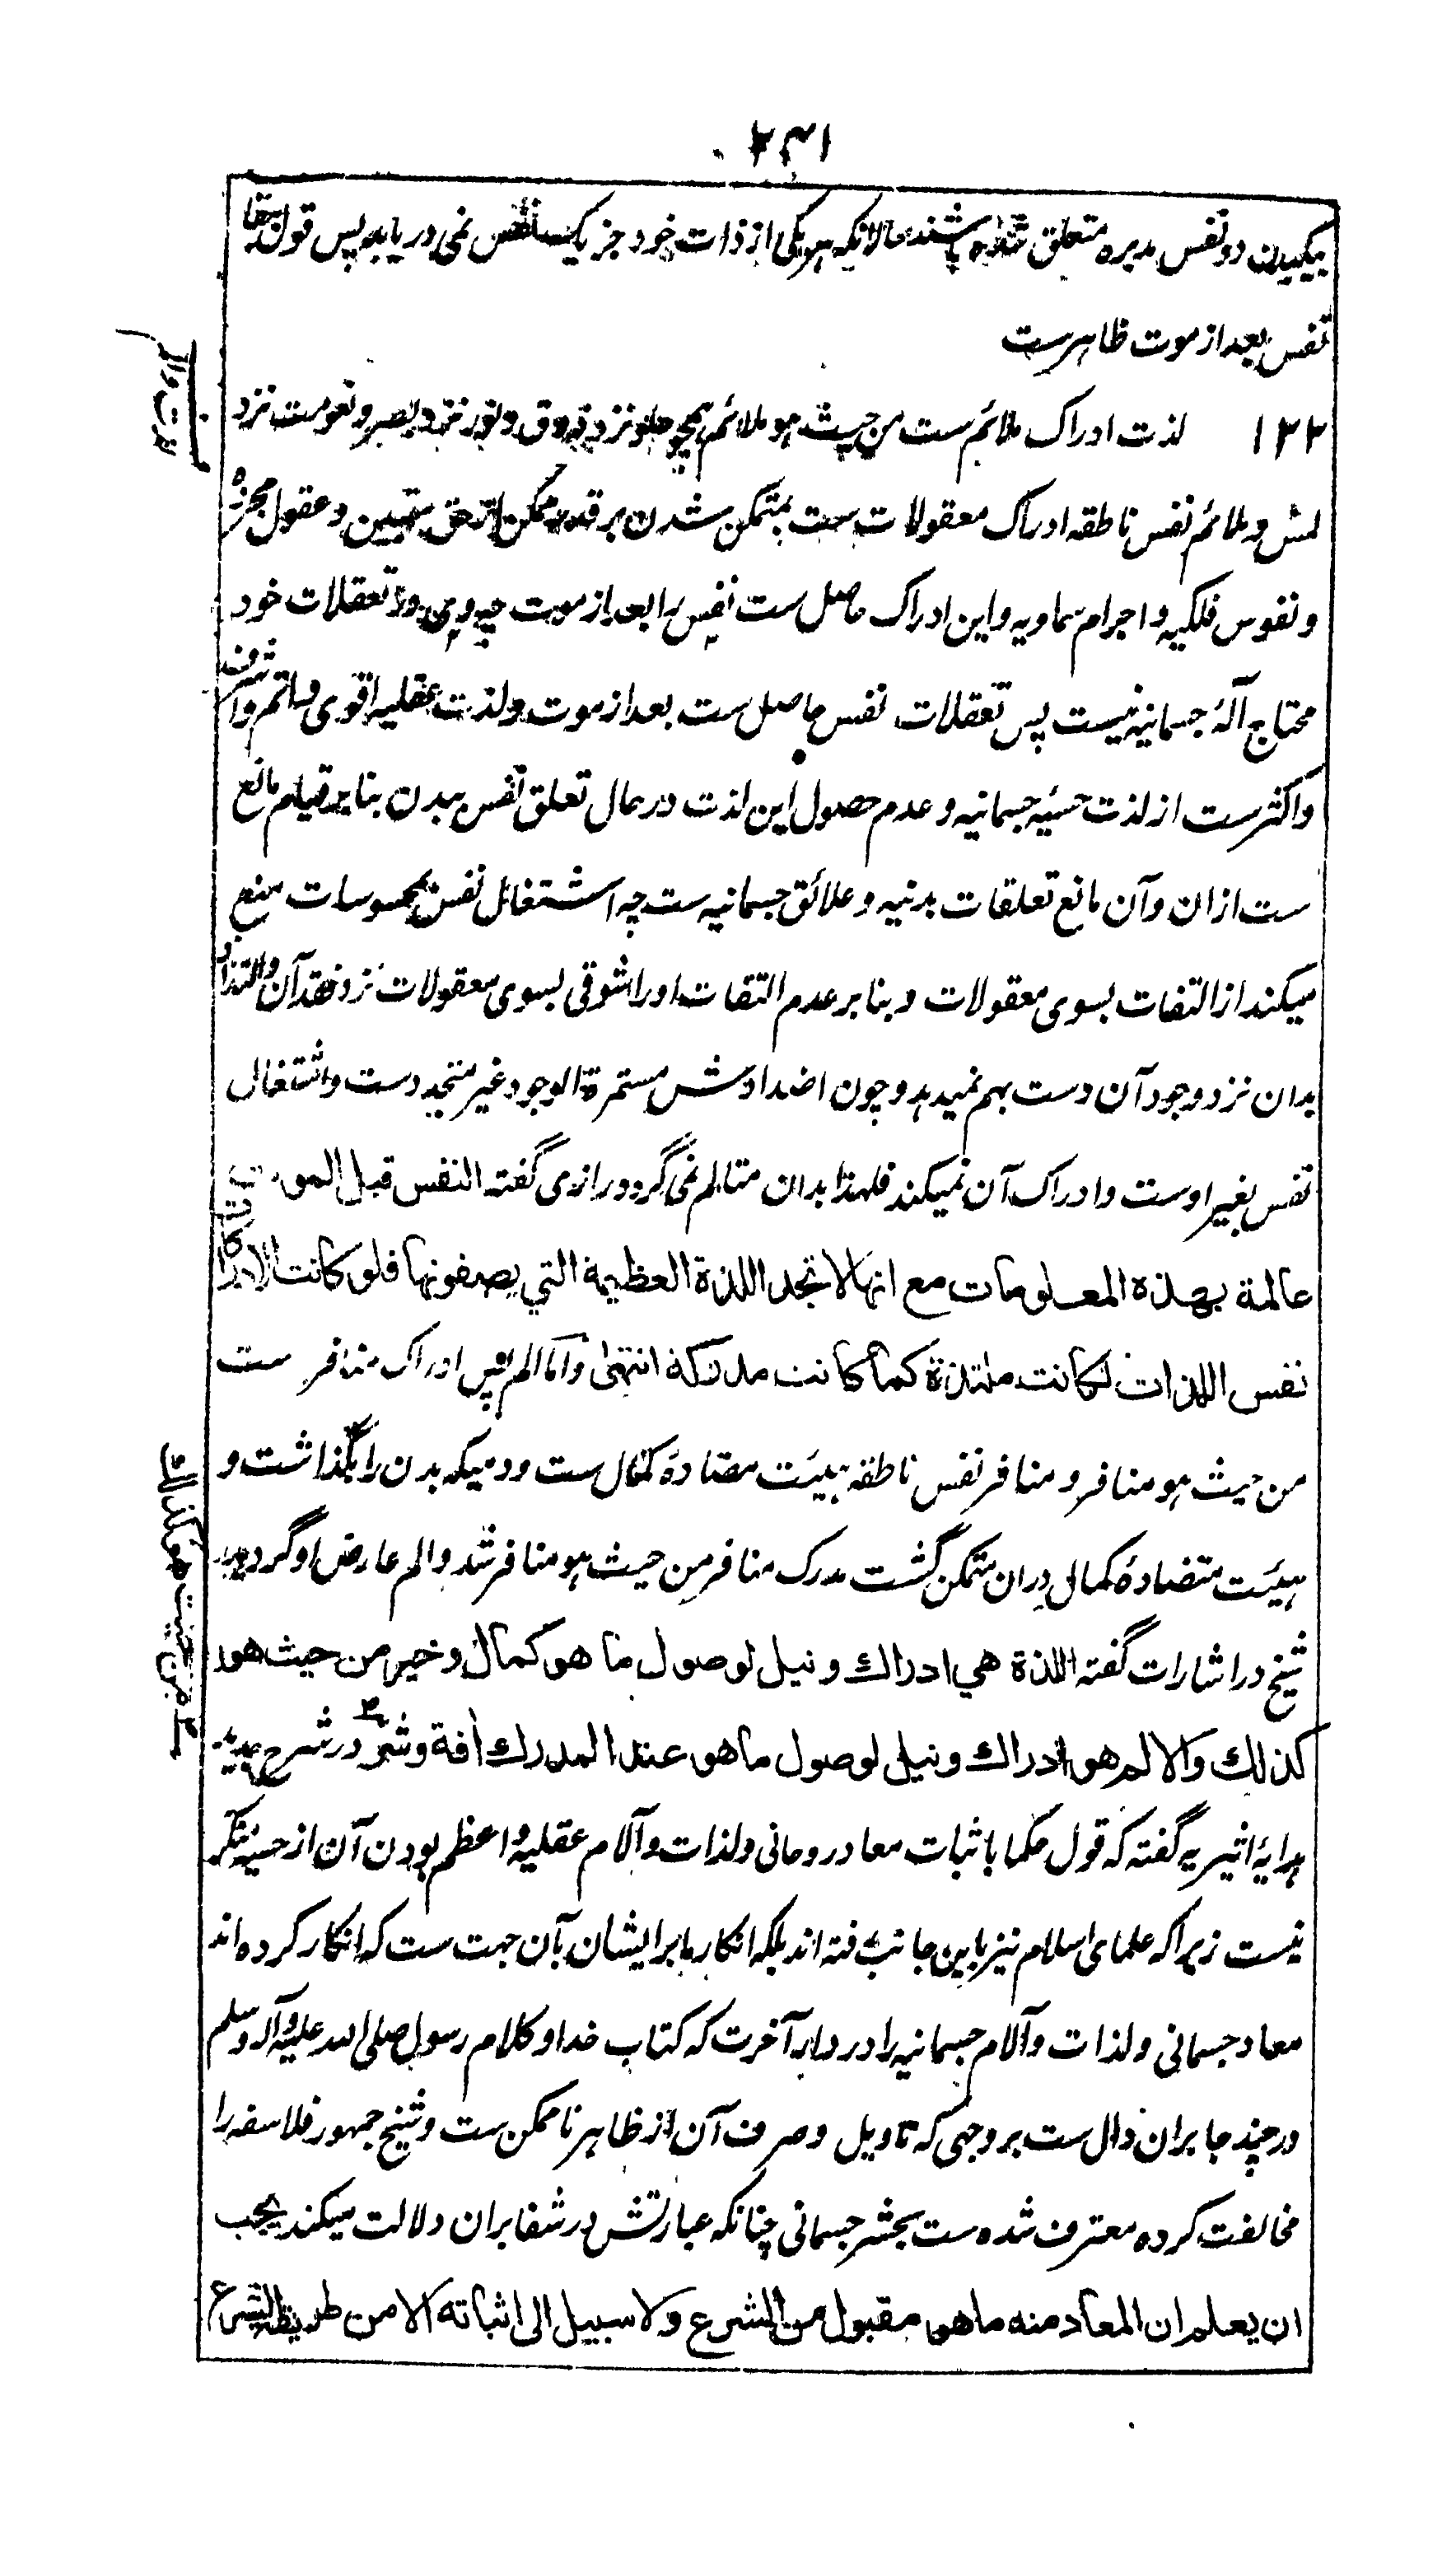 ۲۳۱
بیکبدن دو نفس مدبره متعلق شده باشند حالانکه هر یکی از ذات خود جز یک نفس نمی دریابد پس قول ببقا
نفس بعد از موت ظاهرست
۱۲۲ لذت ادراک ملائم ست من حیث هو ملائم همچو حلو نزد ذوق و نور نزد بصر و نعومت نزد
لمس و ملائم نفس ناطقه ادراک معقولات ست بمتمکن شدن بر قدر ممکن از حق و عقول مجرده
و نفوس فلکیه و اجرام سماویه و این ادراک حاصل ست نفس را بعد از موت چه وی در تعقلات خود
محتاج آلهٔ جسمانیه نیست پس تعقلات نفس حاصل ست بعد از موت و لذت عقلیه اقوی و اتم و اشرف
و اکثرست از لذت حسیه جسمانیه و عدم حصول این لذت در حال تعلق نفس ببدن بنا بر قیام مانع
ست ازان و آن مانع تعلقات بدنیه و علائق جسمانیه ست چه اشتغال نفس بمحسوسات منع
میکند از التفات بسوی معقولات و بنا بر عدم التفات او را شوقی بسوی معقولات نزد فقد آن و التذاذ
بدان نزد وجود آن دست بهم نمیدهد و چون اضدادش مستمرة الوجود غیر متجددست و اشتغال
نفس بغیر اوست و ادراک آن نمیکند فلهذا بدان متالم نمی گردد و رازی گفته النفس قبل الموت
عالمة بهذه المعلومات مع انها لا تجد اللذة العظیمة التي یصفونها فلو کانت الادراکات
نفس اللذات لکانت ملتذة کما کانت مدرکة انتهی و اما الم پس ادراک منافر ست
من حیث هو منافر و منافر نفس ناطقه هیئت مضادهٔ کمال ست و دمیکه بدن را بگذاشت و
هیئت متضادهٔ کمالی دران متمکن گشت مدرک منافر من حیث هو منافر شد و الم عارض او گردید
شیخ در اشارات گفته اللذة هي ادراك و نیل لوصول ما هو کمال و خیر من حیث هو
کذلك والالم هو ادراك و نیل لوصول ما هو عند المدرك آفة و شر در شرح
هدایهٔ اثیریه گفته که قول حکما باثبات معاد روحانی و لذات و آلام عقلیه و اعظم بودن آن از حسیه منکر
نیست زیراکه علمای اسلام نیز باین جانب رفته اند بلکه انکار ما بر ایشان بآن جهت ست که انکار کرده اند
معاد جسمانی و لذات و آلام جسمانیه را در دار آخرت که کتاب خدا و کلام رسول صلی الله علیه و آله و سلم
در چند جا بران دال ست بر وجهی که تاویل و صرف آن از ظاهر ناممکن ست و شیخ جمهور فلاسفه را
مخالفت کرده معترف شده ست بحشر جسمانی چنانکه عبارتش در شفا بران دلالت میکند یجب
ان یعلم ان المعاد منه ما هو مقبول من الشرع و لا سبیل الی اثباته الا من طریق الشرع
لذت والم
من حیث هو کذلك